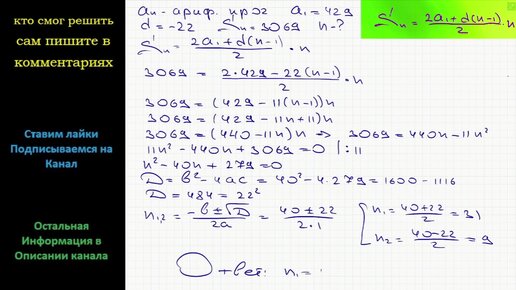 кто смог решить
сам пишите в
комментариях
Ставим лайки
Подписываемся на
Канал
Остальная
Информация в
Описании канала
aₙ - ариф. прог a₁ = 429
d = -22 Sₙ = 3069 n - ?
Sₙ = (2a₁ + d(n-1))/2 · n
3069 = (2·429 - 22(n-1))/2 · n
3069 = (429 - 11(n-1))n
3069 = (429 - 11n + 11)n
3069 = (440 - 11n)n => 3069 = 440n - 11n²
11n² - 440n + 3069 = 0 | : 11
n² - 40n + 279 = 0
D = b² - 4ac = 40² - 4·279 = 1600 - 1116
D = 484 = 22²
n₁,₂ = (-b ± √D)/2a = (40 ± 22)/2·1
n₁ = (40+22)/2 = 31
n₂ = (40-22)/2 = 9
Ответ: n₁ =
Sₙ = (2a₁ + d(n-1))/2 · n